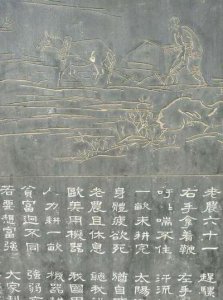 老農六十一 趕騾
右手拿着鞭 左手
呼喘不住 汗流
一畝未耕完 太陽
身體疲欲死 猶自
老農且休息 聽我
歐美用機器 我國用
人力耕一畝 機器耕
貧富迥不同 強弱
若要想富強 大家